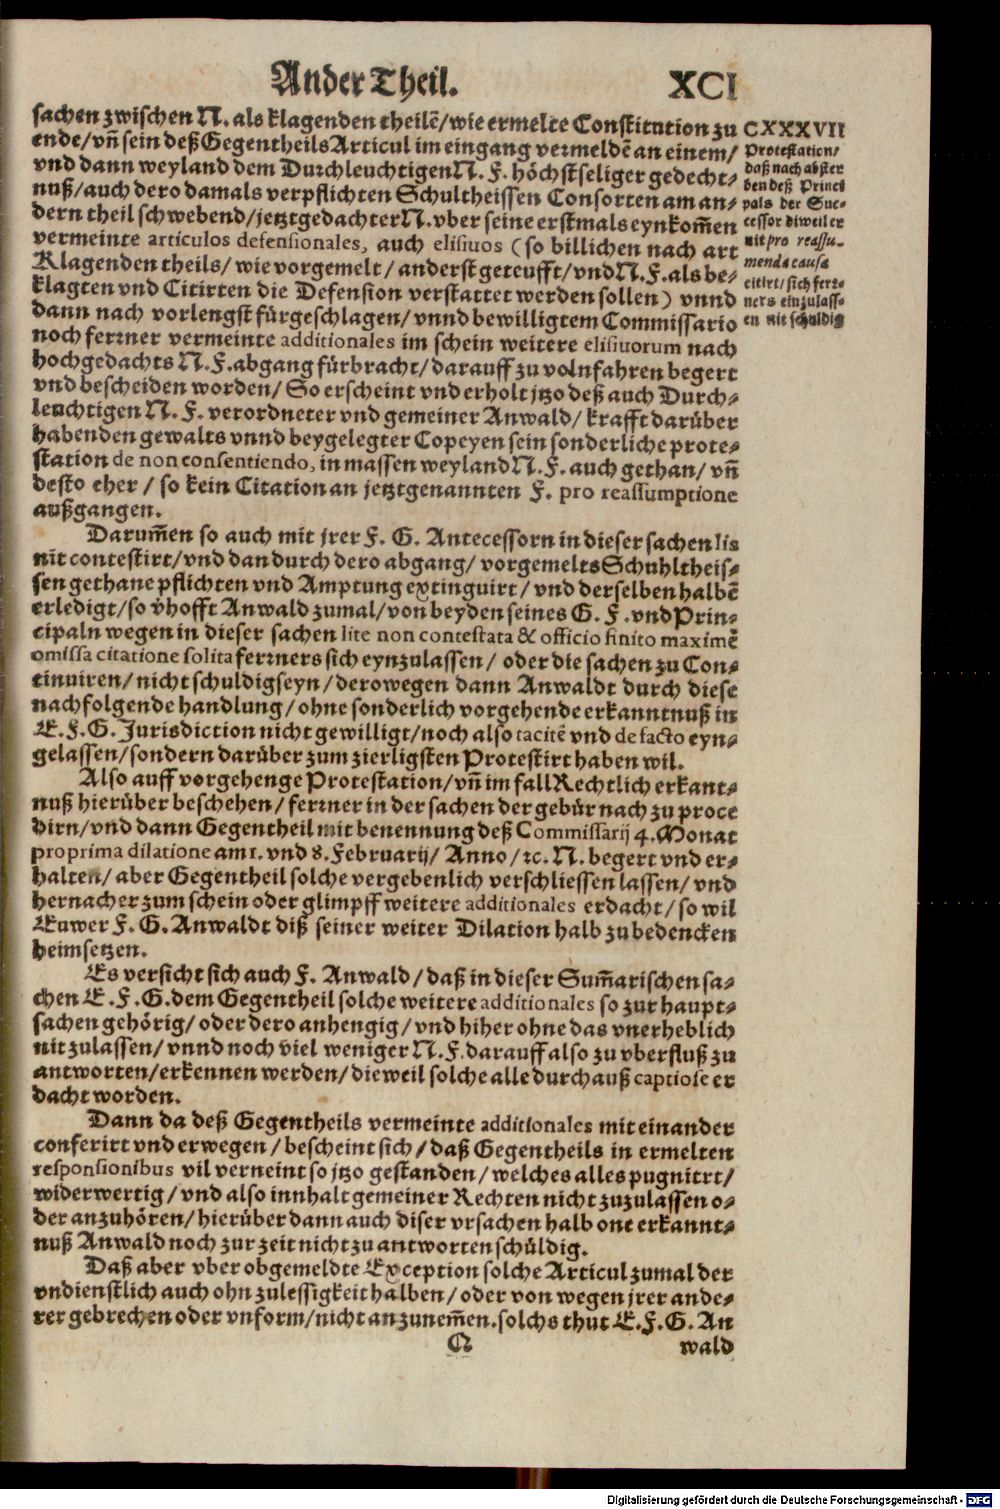 Ander Theil. XCI
sachen zwischen N. als klagenden theilẽ/wie ermelte Constitution zu
ende/vn̄ sein deß Gegentheils Articul im eingang vermeldẽ an einem/
vnd dann weyland dem Durchleuchtigen N. F. höchstseliger gedecht⸗
nuß/auch dero damals verpflichten Schultheissen Consorten am an⸗
dern theil schwebend/jetztgedachter N. vber seine erstmals eynkom̄en
vermeinte articulos defensionales, auch elisiuos (so billichen nach art
Klagenden theils/wie vorgemelt/anderst geteufft/vnd N. F. als be⸗
klagten vnd Citirten die Defension verstattet werden sollen) vnnd
dann nach vorlengst fürgeschlagen/vnnd bewilligtem Commissario
noch ferrner vermeinte additionales im schein weitere elisiuorum nach
hochgedachts N. F. abgang fürbracht/darauff zu volnfahren begert
vnd bescheiden worden/So erscheint vnd erholt jtzo deß auch Durch⸗
leuchtigen N. F. verordneter vnd gemeiner Anwald/krafft darüber
habenden gewalts vnnd beygelegter Copeyen sein sonderliche prote⸗
station de non consentiendo, in massen weyland N. F. auch gethan/vn̄
desto eher/so kein Citation an jetztgenannten F. pro reassumptione
außgangen.
CXXXVII
Protestation/
daß nach abster
ben deß Princi
pals der Suc⸗
cessor diweil er
nit pro reassu-
menda causa
citirt/sich ferr⸗
ners einzulass⸗
en nit schuldig
Darum̄en so auch mit jrer F. G. Antecessorn in dieser sachen lis
nit contestirt/vnd dan durch dero abgang/vorgemelts Schuhltheis⸗
sen gethane pflichten vnd Amptung extinguirt/vnd derselben halbẽ
erledigt/so v̈hofft Anwald zumal/von beyden seines G. F. vnd Prin⸗
cipaln wegen in dieser sachen lite non contestata & officio finito maximẽ
omissa citatione solita ferrners sich eynzulassen/oder die sachen zu Con⸗
tinuiren/nicht schuldig seyn/derowegen dann Anwaldt durch diese
nachfolgende handlung/ohne sonderlich vorgehende erkanntnuß in
E. F. G. Jurisdiction nicht gewilligt/noch also tacitẽ vnd de facto eyn⸗
gelassen/sondern darüber zum zierligsten Protestirt haben wil.
Also auff vorgehenge Protestation/vn̄ im fall Rechtlich erkant⸗
nuß hierüber beschehen/ferrner in der sachen der gebür nach zu proce
dirn/vnd dann Gegentheil mit benennung deß Commissarij 4. Monat
pro prima dilatione am 1. vnd 8. Februarij/Anno/ꝛc. N. begert vnd er⸗
halten/aber Gegentheil solche vergebenlich verschliessen lassen/vnd
hernacher zum schein oder glimpff weitere additionales erdacht/so wil
Euwer F. G. Anwaldt diß seiner weiter Dilation halb zu bedencken
heimsetzen.
Es versicht sich auch F. Anwald/daß in dieser Sum̄arischen sa⸗
chen E. F. G. dem Gegentheil solche weitere additionales so zur haupt⸗
sachen gehörig/oder dero anhengig/vnd hiher ohne das vnerheblich
nit zulassen/vnnd noch viel weniger N. F. darauff also zu vberfluß zu
antworten/erkennen werden/dieweil solche alle durch auß captiose er
dacht worden.
Dann da deß Gegentheils vermeinte additionales mit einander
conferirt vnd erwegen/bescheint sich/daß Gegentheils in ermelten
responsionibus vil verneint so jtzo gestanden/welches alles pugnitrt/
widerwertig/vnd also innhalt gemeiner Rechten nicht zuzulassen o⸗
der anzuhören/hierüber dann auch diser vrsachen halb one erkannt⸗
nuß Anwald noch zur zeit nicht zu antworten schüldig.
Daß aber vber obgemeldte Exception solche Articul zumal der
vndienstlich auch ohn zulessigkeit halben/oder von wegen jrer ande⸗
rer gebrechen oder vnform/nicht anzunem̄en. solchs thut E. F. G. An
Q wald
Digitalisierung gefördert durch die Deutsche Forschungsgemeinschaft - DFG